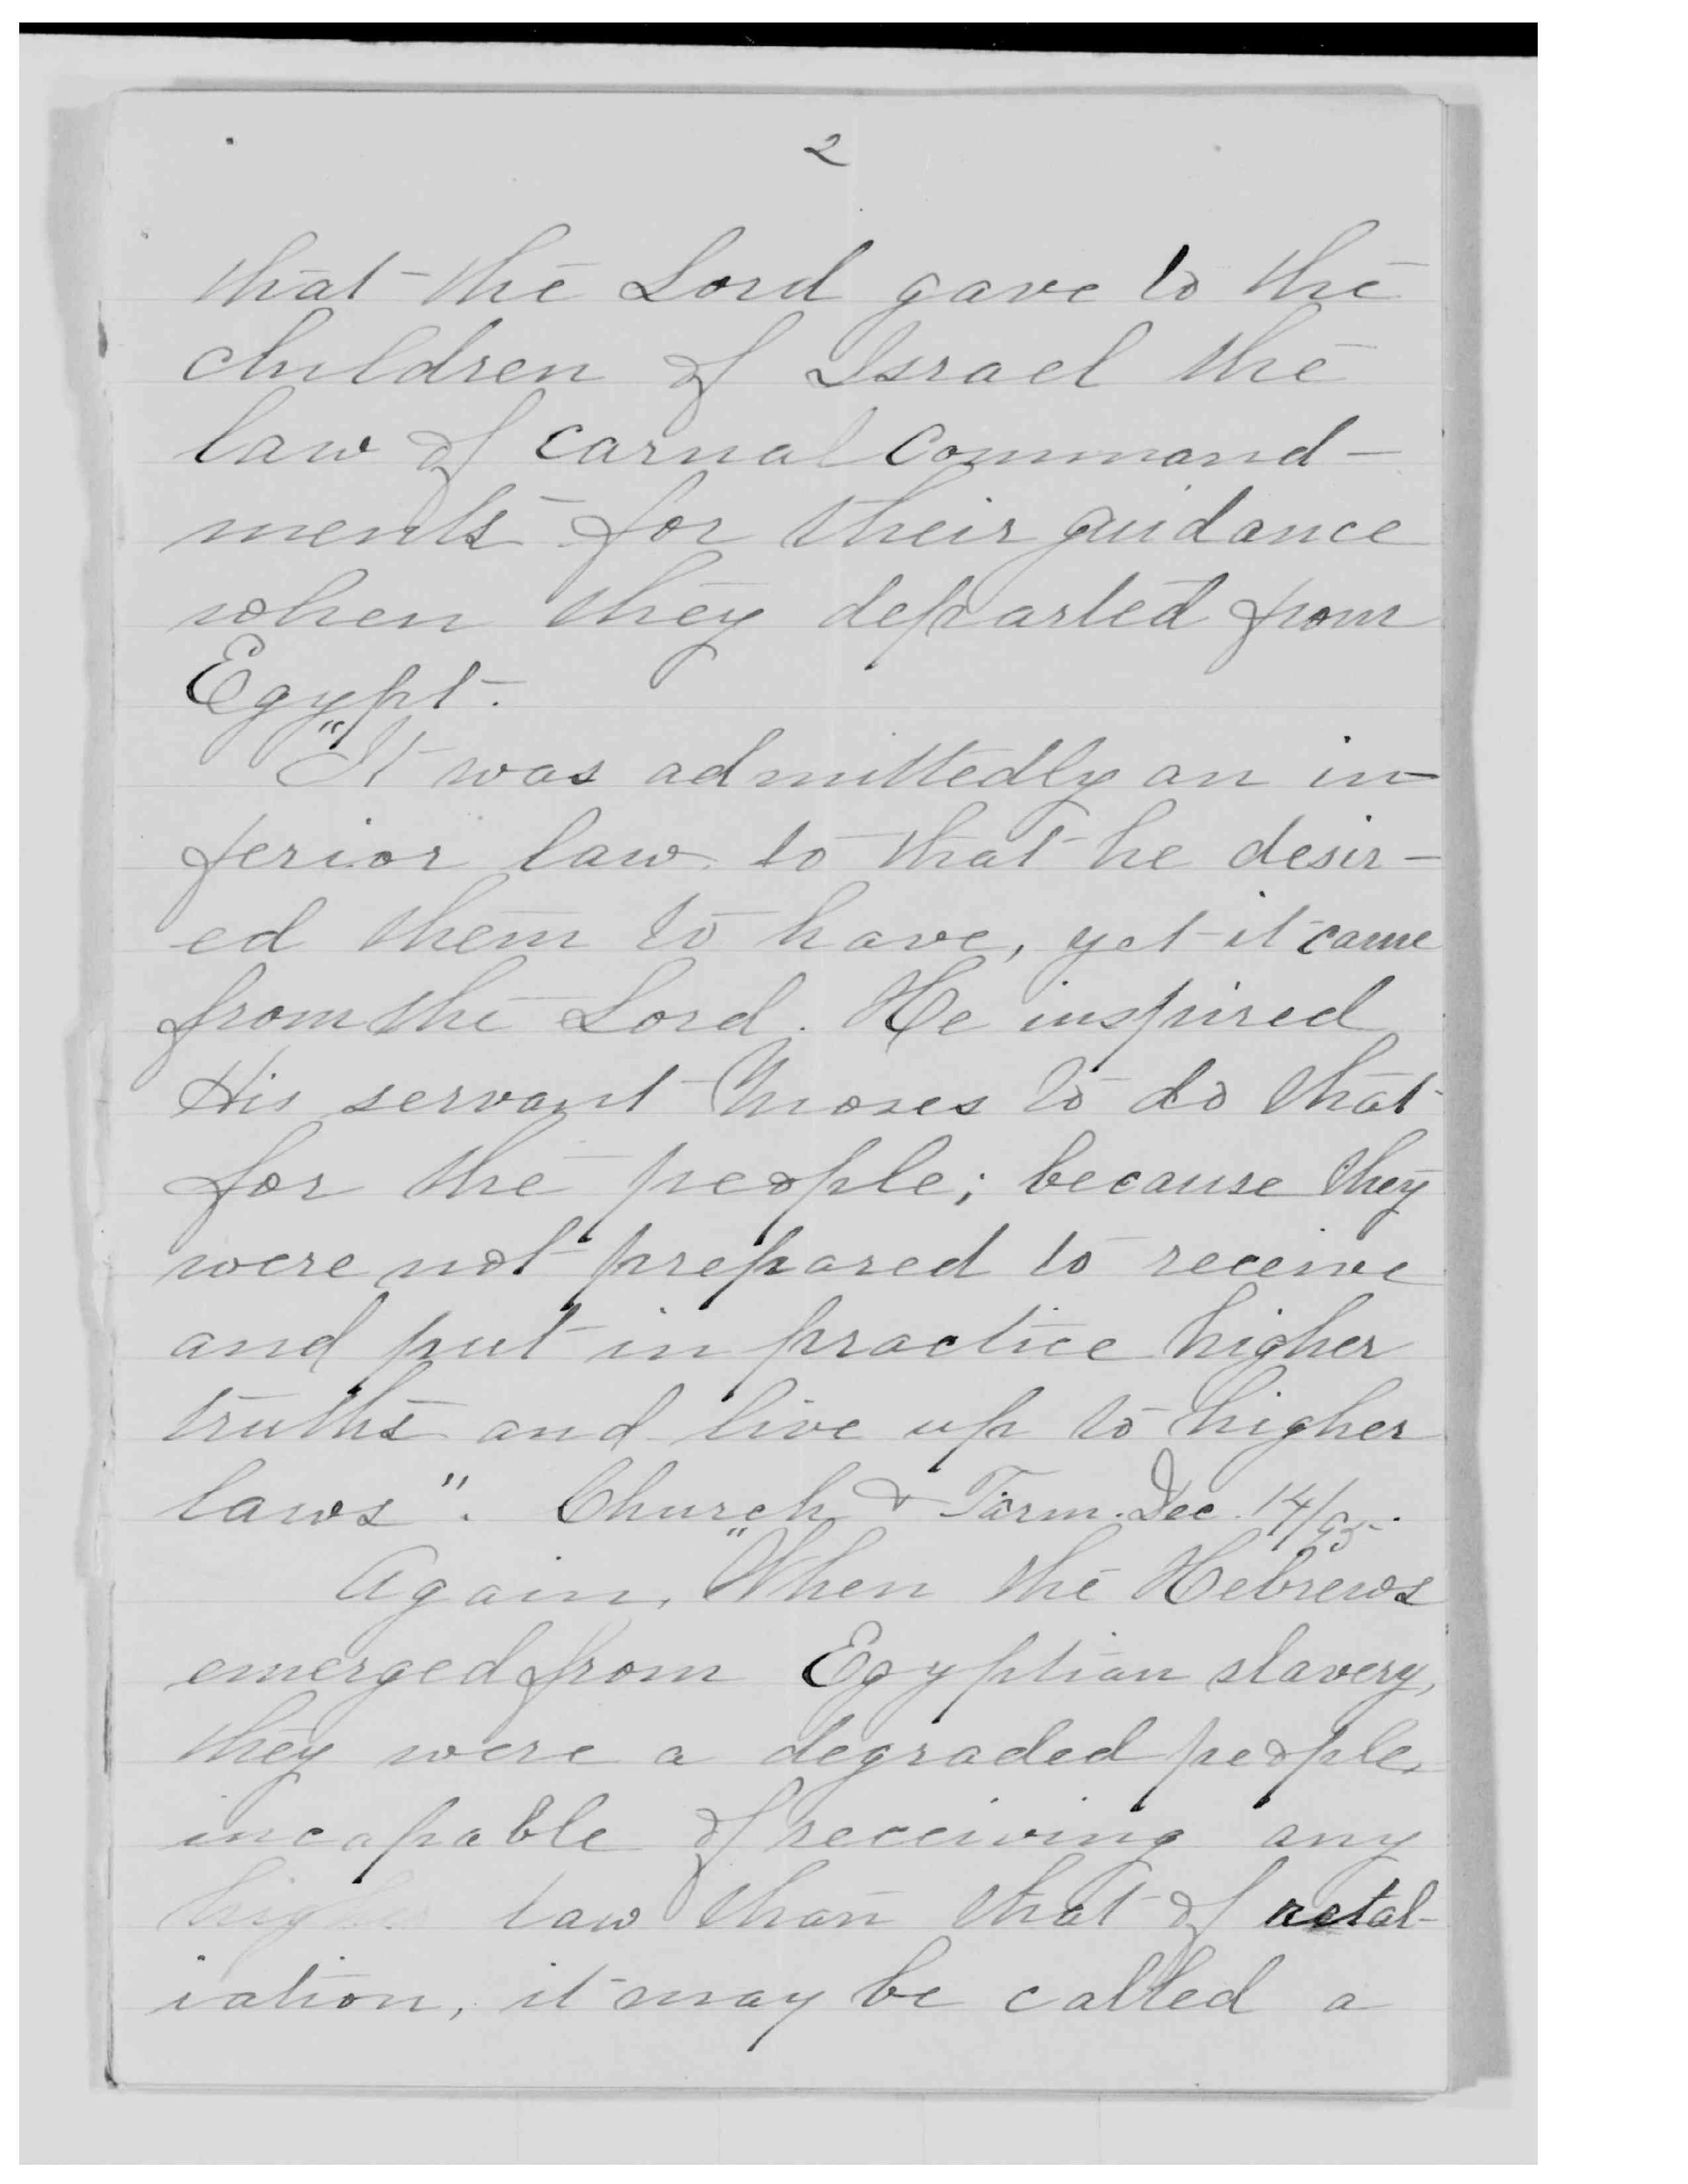 2
that the Lord gave to the
children of Israel the
law of carnal command-
ments for their guidance
when they departed from
Egypt.
"It was admittedly an in-
ferior law to that he desir-
ed them to have, yet it came
from the Lord. He inspired
His servant Moses to do that
for the people; because they
were not prepared to receive
and put in practice higher
truths and live up to higher
laws". Church & Farm. Dec. 14/95.
Again, "When the Hebrews
emerged from Egyptian slavery,
they were a degraded people,
incapable of receiving any
higher law than that of retal-
iation, it may be called a